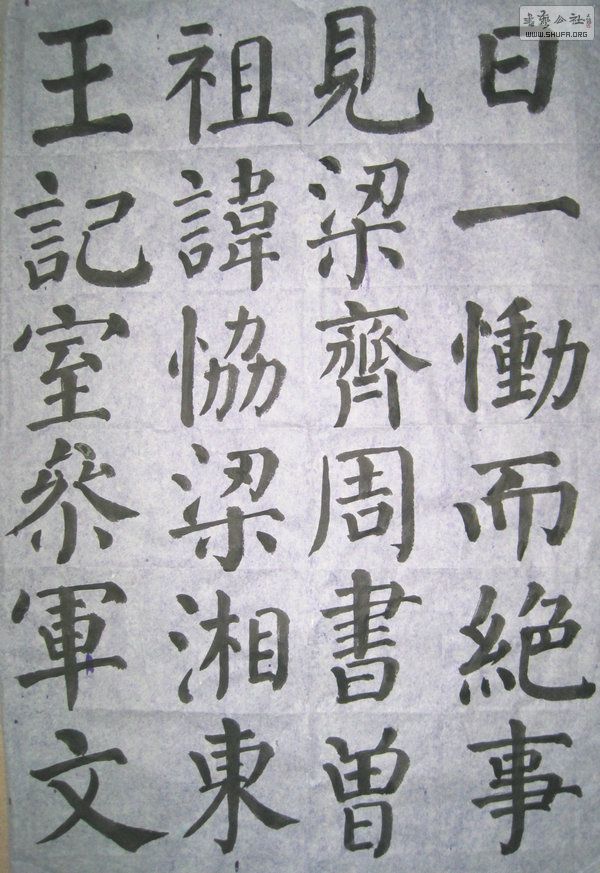 日一慟而絶事
見梁齊周書曾
祖諱恊梁湘東
王記室叅軍文
书艺公社
WWW.SHUFA.ORG